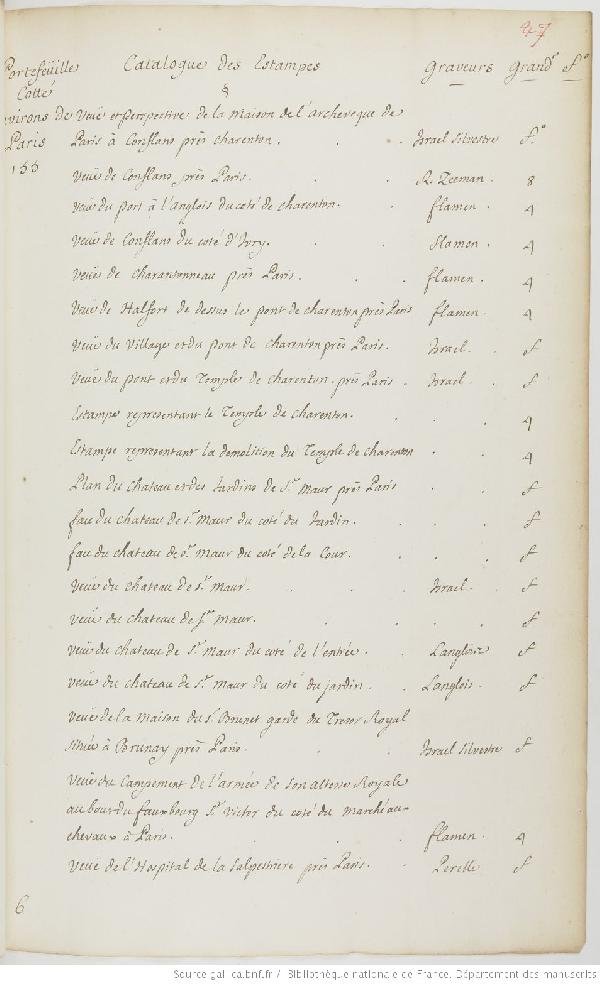 47
Portefeüille Catalogue des Estampes Graveurs Grand.r f.o
Cotté §
Environs de Veüe et perspective de la maison de l'archeveque de
Paris Paris à Conflans près charenton. Israel Silvestre f.o
155
Veüe de Conflans près Paris. R. Zeeman. 8
Veüe du port à l'anglois du coté de charenton. flamen. 4
Veüe de Conflans du coté d'Ivry. flamen. 4
Veüe de charantonneau près Paris. flamen. 4
Veüe de Halfort de dessus les pont de charenton près Paris flamen. 4
Veüe du Village et du pont de charenton près Paris. Israel. f
Veüe du pont et du Temple de charenton. près Paris. Israel. f
Estampe representant le Temple de charenton. 4
Estampe representant la demolition du Temple de charenton 4
Plan du chateau et des Jardins de S.t Maur près Paris f
fau du chateau de S.t Maur du coté du Jardin. f
fau du chateau de S.t Maur du coté de la Cour. f
Veüe du chateau de S.t Maur. Israel. f
Veüe du chateau de S.t Maur. f
Veüe du chateau de S.t Maur du coté de l'entrée. Langlois f
Veüe du chateau de S.t Maur du coté du jardin. Langlois. f
Veüe de la Maison du S. Brunet garde du Tresor Royal
située à Brunay près Paris. Israel Silvestre f
Veüe du Campement de l'armée de son altesse Royale
au bout du faux-bourg S.t Victor du coté du Marché au-
chevaux à Paris. flamen. 4
Veüe de l'Hospital de la Salpestriere près Paris. Perelle f
6
Source gallica.bnf.fr / Bibliothèque nationale de France. Département des manuscrits